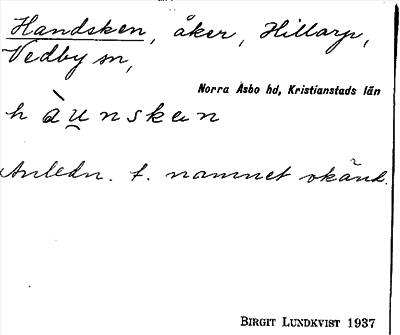 Handsken, åker, Hillarp,
Vedby sn,
Norra Åsbo hd, Kristianstads län
hàu̯nsken
Anledn. t. namnet okänd.
BIRGIT LUNDKVIST 1937